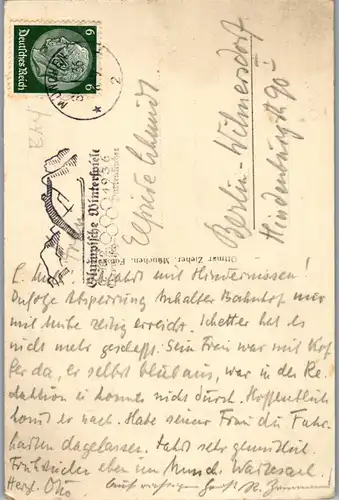 Deutsches Reich
6 6
MÜNCHEN
2
Olympische Winterspiele
1936
Garmisch-Partenkirchen
Frau
Elfriede Schmidt
Berlin-Wilmersdorf
Hindenburgstr. 90
Ottmar Zieher, München.
L. Abfahrt mit Hindernissen!
Infolge Absperrung Anhalter Bahnhof nur
mit Mühe zeitig erreicht. hat es
nicht mehr geschafft. Sein Frau war mit Kof
fer da, er selbst blieb aus, war in der Re
daktion u. konnte nicht durch. Hoffentlich
kommt er nach. Habe seiner Frau die Fahr
karten dagelassen. Fahrt sehr gemütlich.
Frühstücken eben im Münch. Wartesaal.
Herzl. Otto